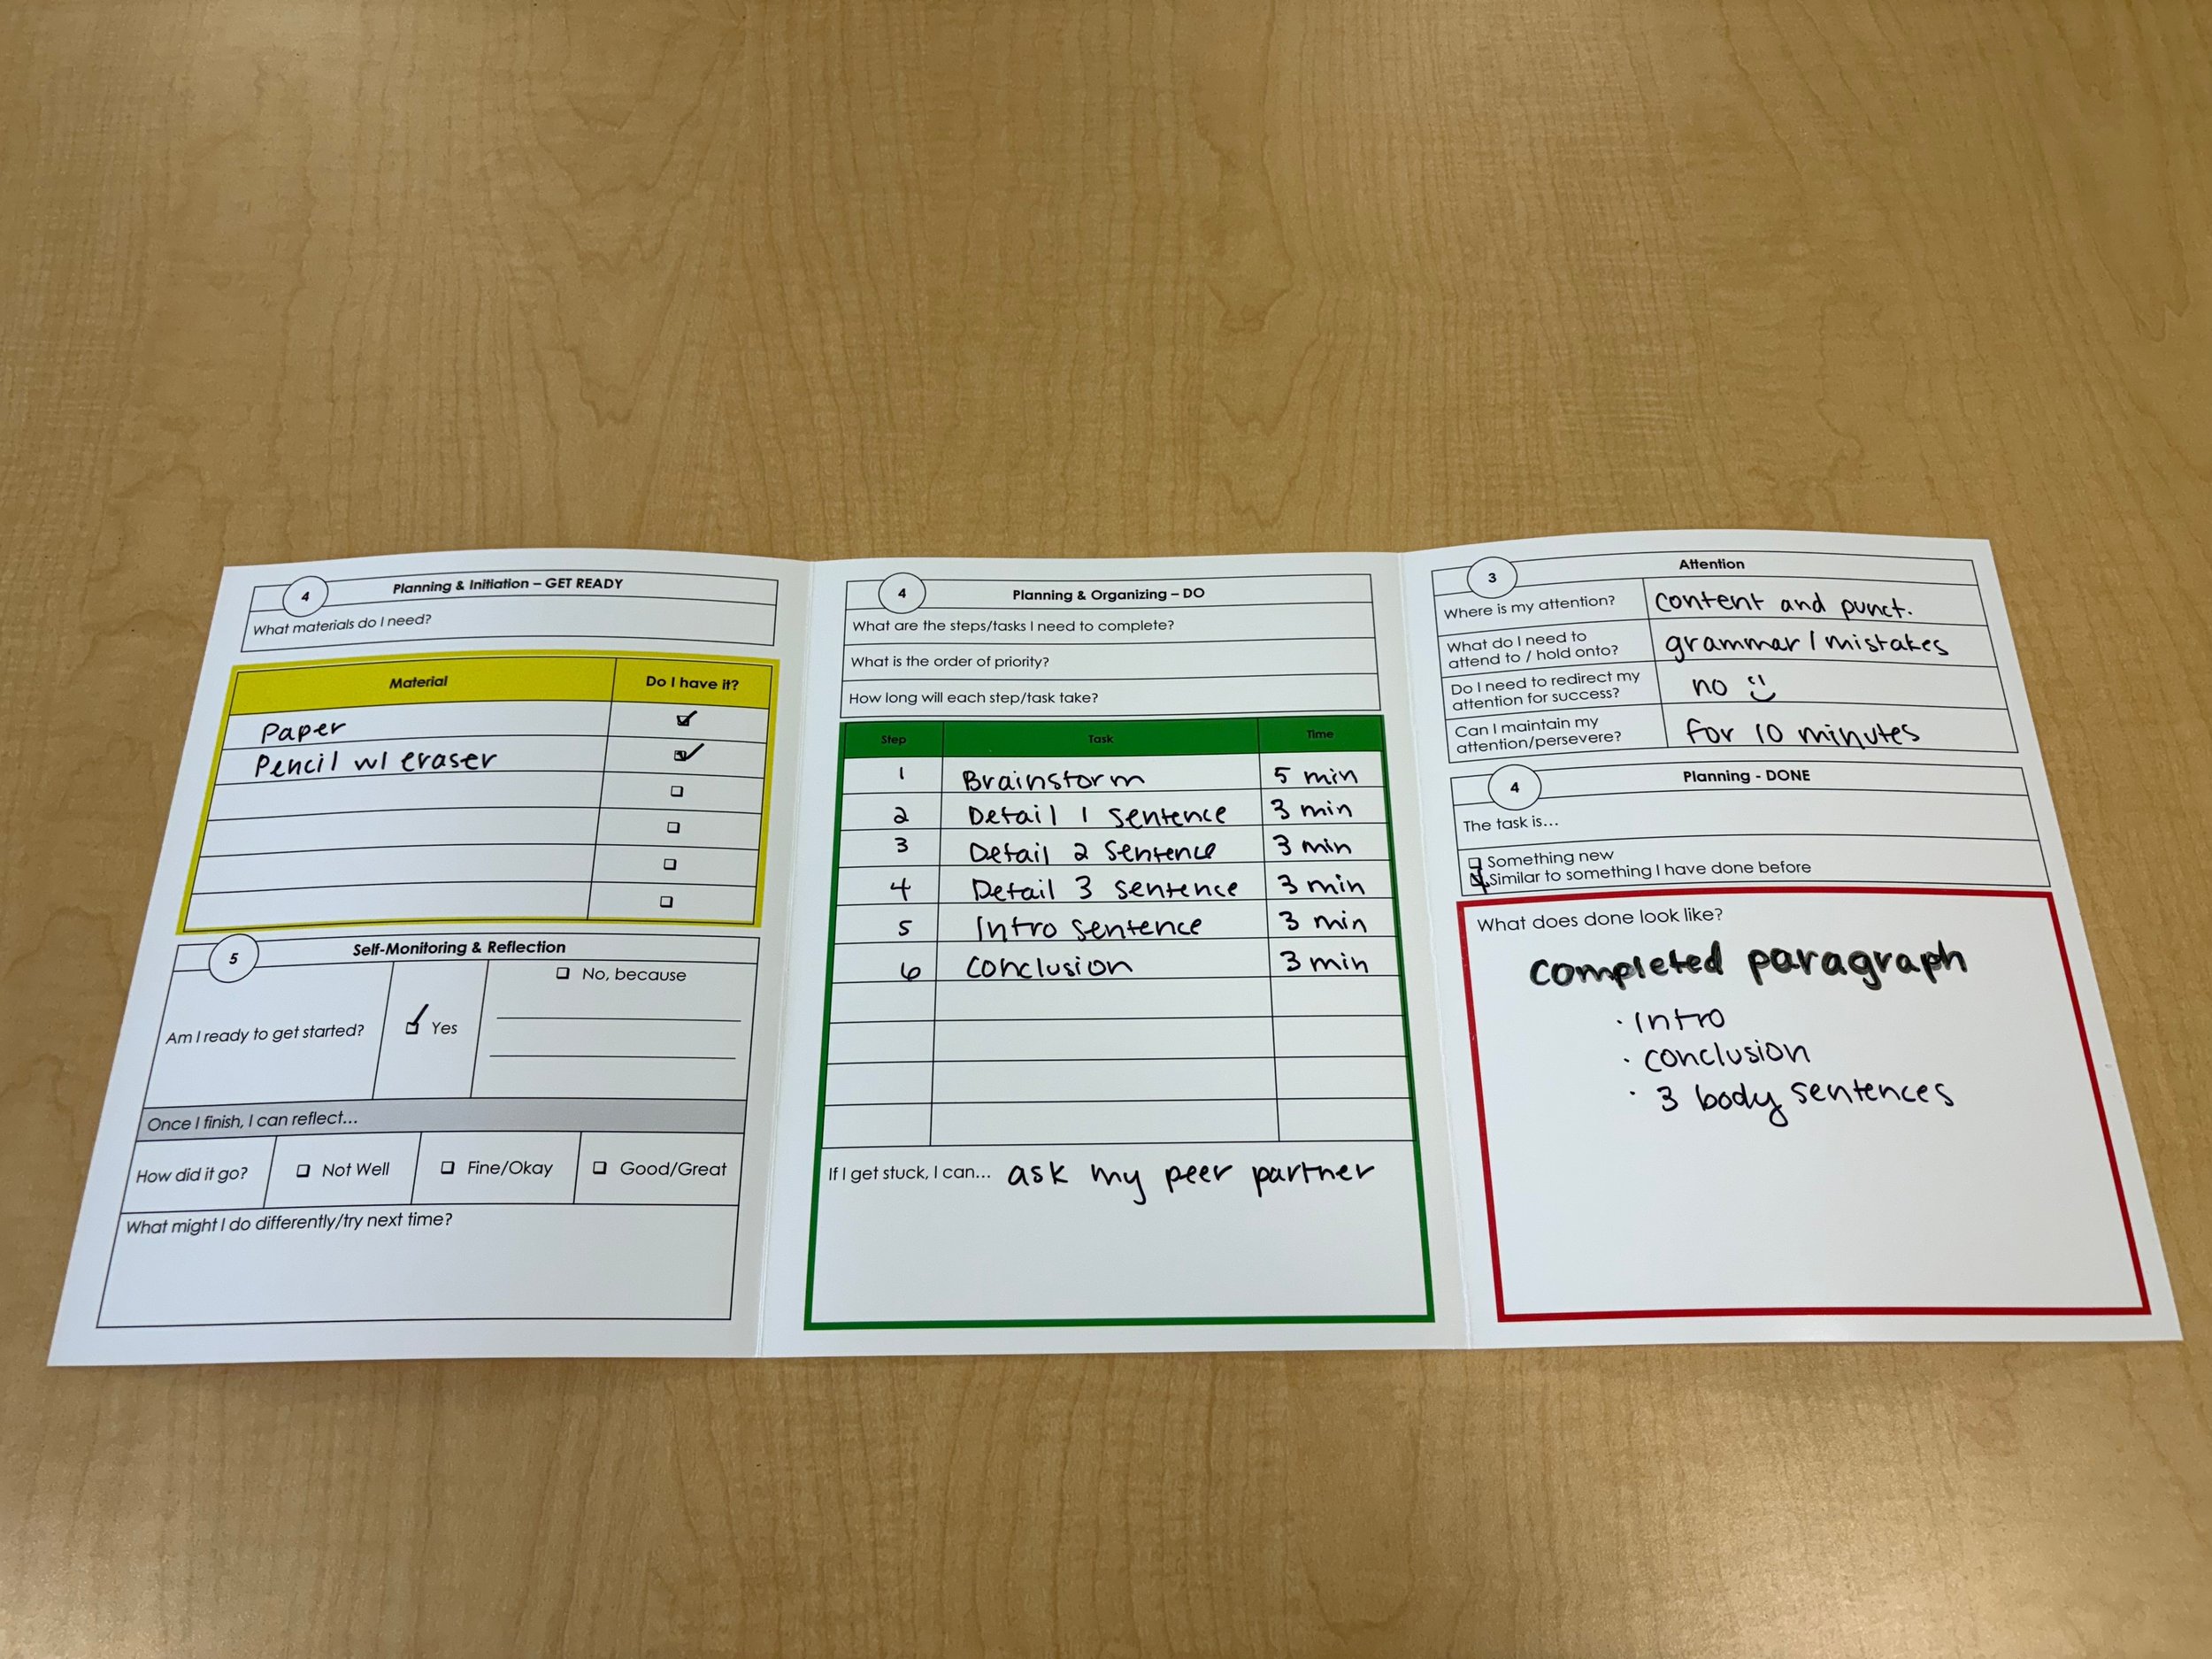 4
Planning & Initiation – GET READY
What materials do I need?
Material
Do I have it?
Paper
Pencil w/ eraser
5
Self-Monitoring & Reflection
Am I ready to get started?
Yes
No, because
Once I finish, I can reflect...
How did it go?
Not Well
Fine/Okay
Good/Great
What might I do differently/try next time?
4
Planning & Organizing – DO
What are the steps/tasks I need to complete?
What is the order of priority?
How long will each step/task take?
Step Task Time
1 Brainstorm 5 min
2 Detail 1 sentence 3 min
3 Detail 2 sentence 3 min
4 Detail 3 sentence 3 min
5 Intro sentence 3 min
6 conclusion 3 min
If I get stuck, I can... ask my peer partner
3
Attention
Where is my attention? content and punct.
What do I need to
attend to / hold onto?
grammar / mistakes
Do I need to redirect my
attention for success?
no
Can I maintain my
attention/persevere?
for 10 minutes
4
Planning - DONE
The task is...
Something new
Similar to something I have done before
What does done look like?
completed paragraph
· Intro
· conclusion
· 3 body sentences